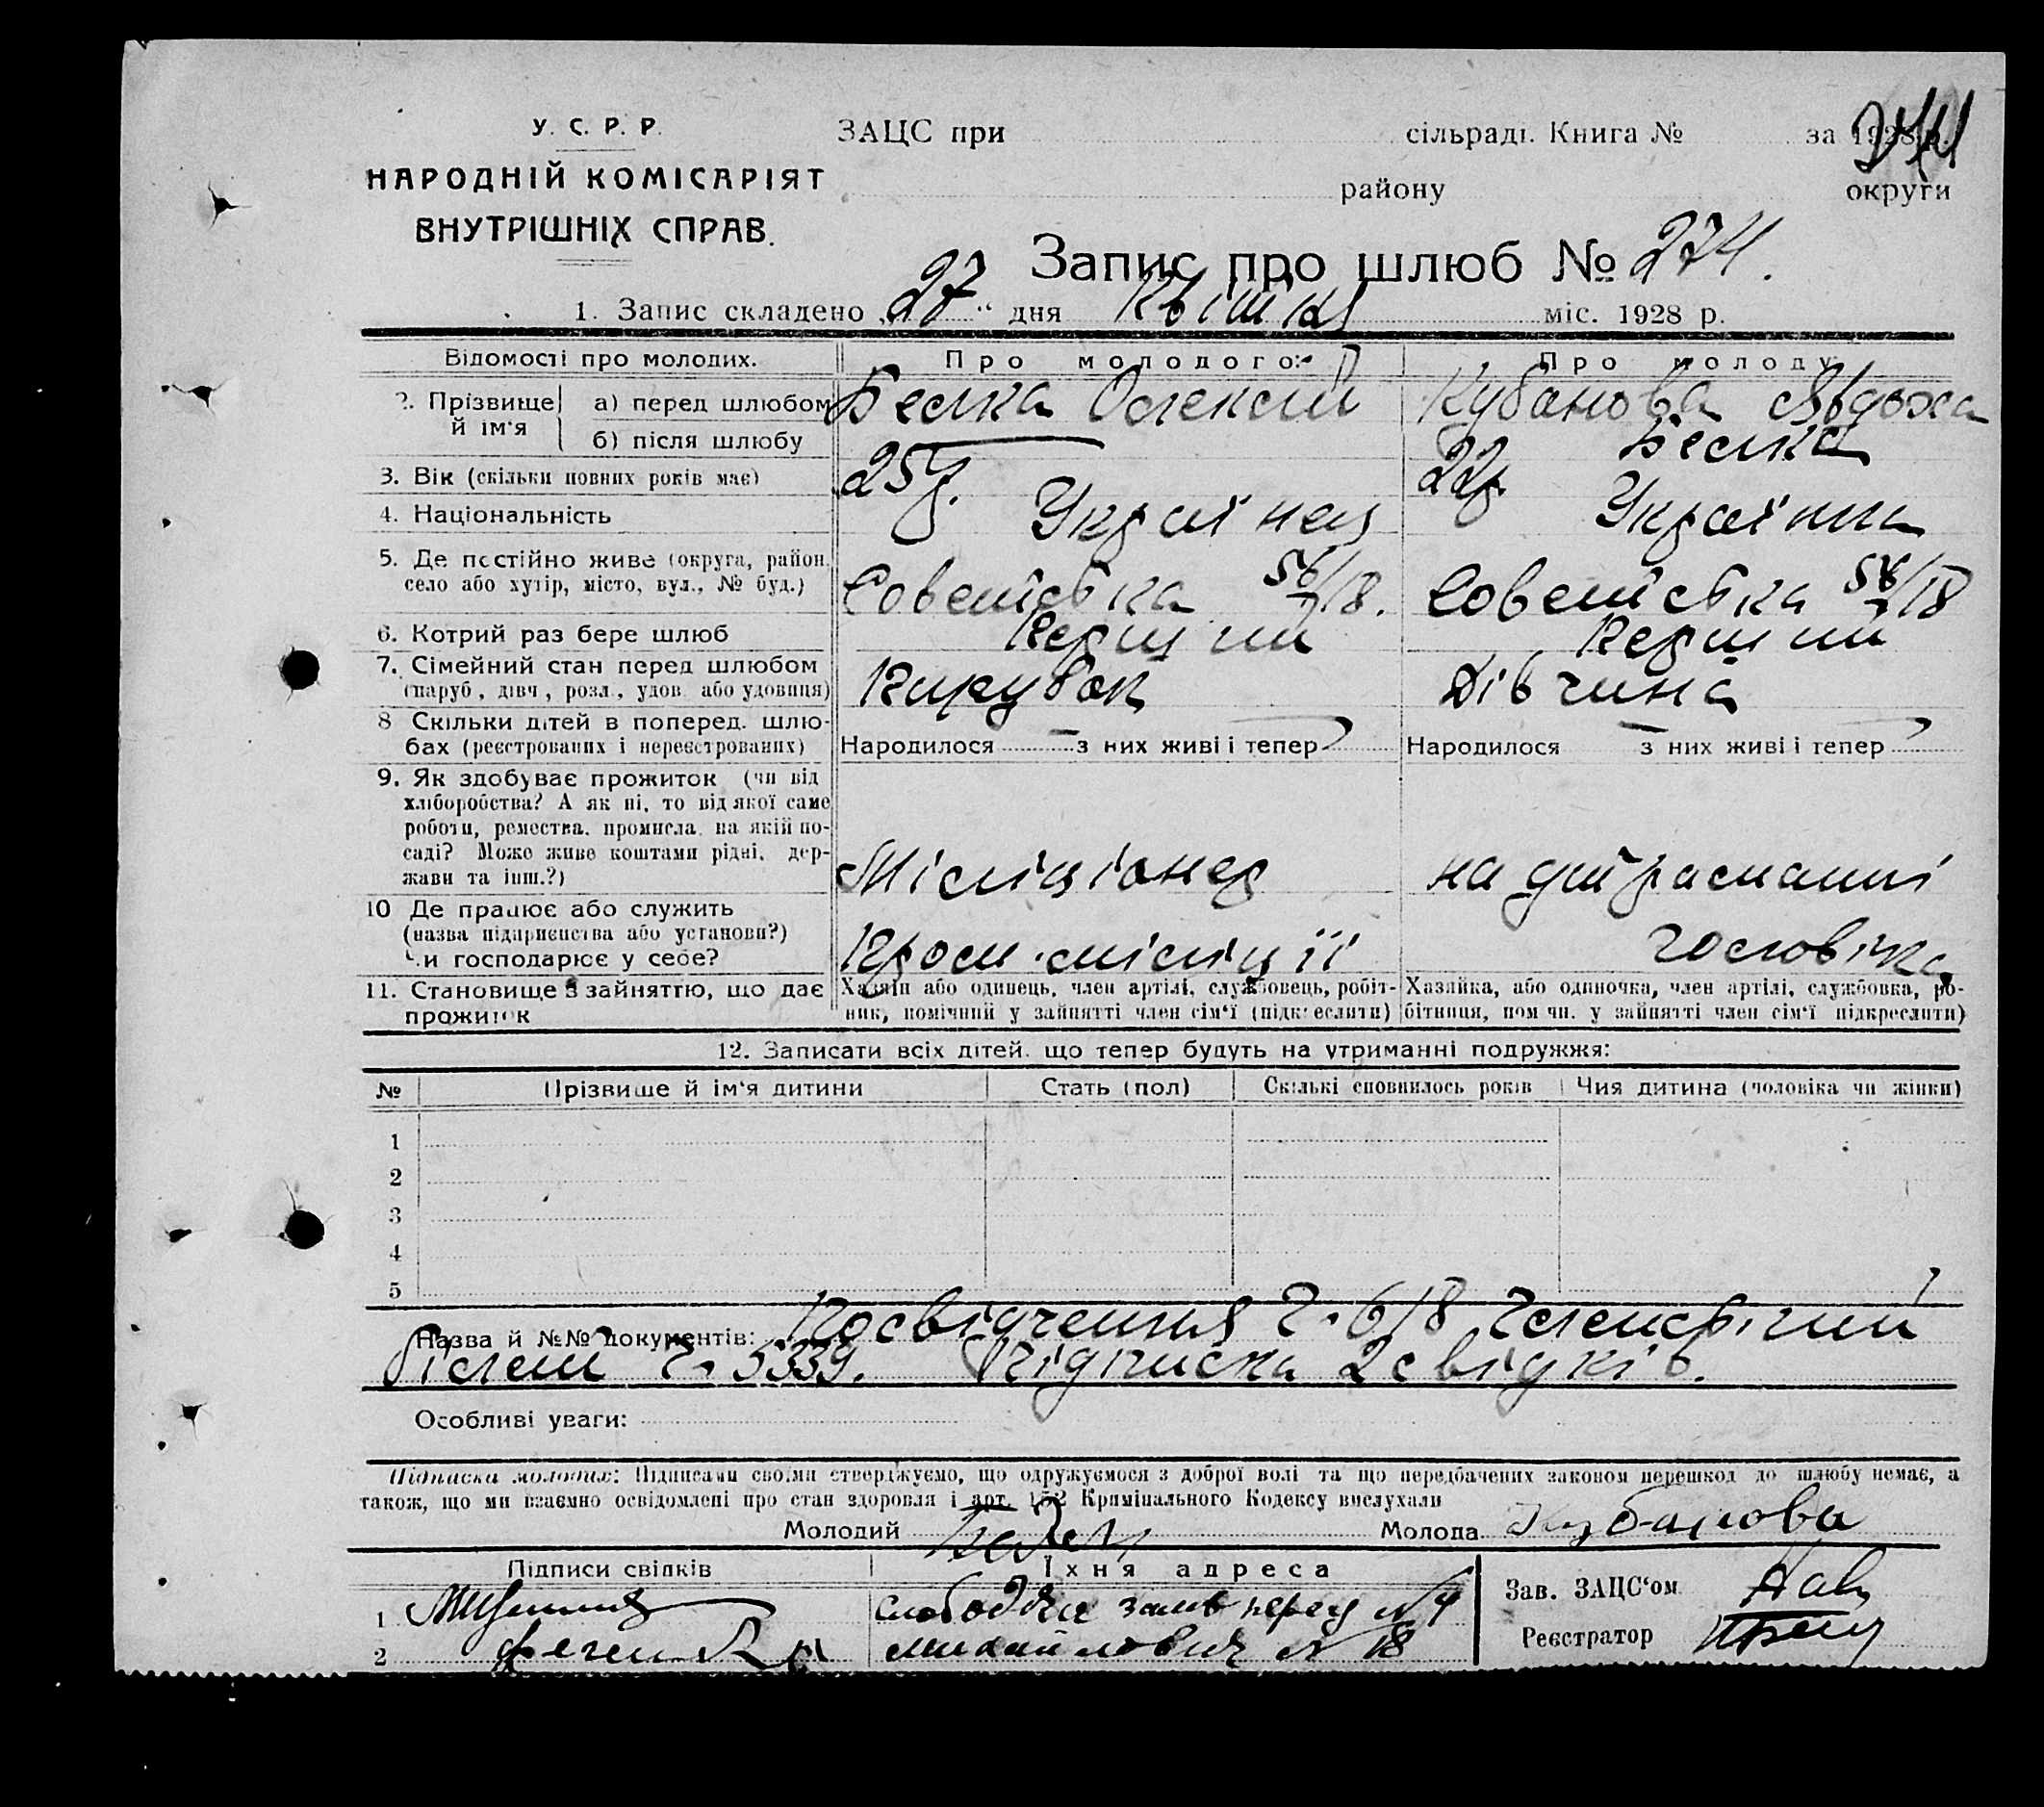 У. С. Р. Р.
НАРОДНІЙ КОМІСАРІЯТ
ВНУТРІШНІХ СПРАВ.
ЗАЦС при сільраді. Книга № за 1928 р.
району округи
274
Запис про шлюб № 274.
1. Запис складено „27“ дня Квітня міс. 1928 р.
Відомості про молодих. Про молодого: Про молоду:
2. Прізвище й ім'я а) перед шлюбом Белка Олексій Кубанова Явдоха
б) після шлюбу Белка
3. Вік (скільки повних років має) 25 р. 22 р.
4. Національність Українец Українка
5. Де постійно живе (округа, район, село або хутір, місто, вул., № буд.) Советська 56/18. Советська 56/18
6. Котрий раз бере шлюб Перший Перший
7. Сімейний стан перед шлюбом (паруб, дівч, розл., удов. або удовиця) Парубок Дівчина
8 Скільки дітей в поперед. шлюбах (реєстрованих і нереєстрованих) Народилося — з них живі і тепер Народилося — з них живі і тепер
9. Як здобуває прожиток (чи від
хліборобства? А як ні, то від якої саме
роботи, ремества, промисла, на якій по-
саді? Може живе коштами рідні, дер-
жави та інш.?) Міліціонер на утриманні
10 Де працює або служить
(назва підприємства або установи?)
Чи господарює у себе? Пром. міліції чоловіка
11. Становище в зайняттю, що дає прожиток
Хазяїн або одинець, член артілі, службовець, робіт-
ник, помічний у зайнятті член сім'ї (підкреслити)
Хазяйка, або одиночка, член артілі, службовка, ро-
бітниця, помічн. у зайнятті член сім'ї підкреслити)
12. Записати всіх дітей, що тепер будуть на утриманні подружжя:
№ Прізвище й ім'я дитини Стать (пол) Скількі сповнилось років Чия дитина (чоловіка чи жінки)
1
2
3
4
5
Назва й №№ документів: Посвідчення ч. 618
білет ч. 5339. Підписка 2 свідків.
Особливі уваги:
Підписка молодих: Підписами своїми стверджуємо, що одружуємося з доброї волі та що передбачених законом перешкод до шлюбу немає, а
також, що ми взаємно освідомлені про стан здоровля і арт. 152 Кримінального Кодексу вислухали
Молодий Молода Кубанова
Підписи свідків Їхня адреса
1 Слободка
2 № 18
Зав. ЗАЦС'ом
Реєстратор